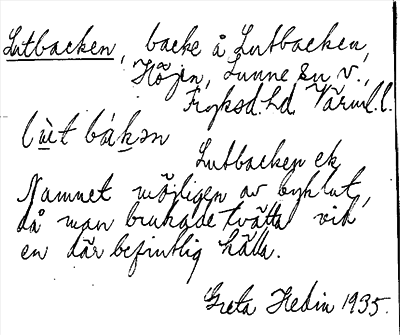 Lutbacken, backe å Lutbacken,
Höjen, Lunne sn v.,
Fryksd. hd Värml. l.
lut bakən
Lutbacken ek
Namnet möjligen av byklut,
då man brukade tvätta vid
en där befintlig källa.
Greta Hedin 1935.